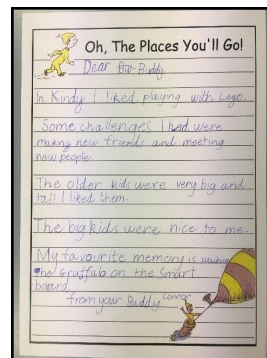 Oh, The Places You'll Go!
Dear Buddy
In Kindy I liked playing with Lego.
Some challenges I had were
making new friends and meeting
new people.
The older kids were very big and
tall I liked them.
The big kids were nice to me.
My favourite memory is watching
the Gruffalo on the Smart
board.
from your Buddy Connor